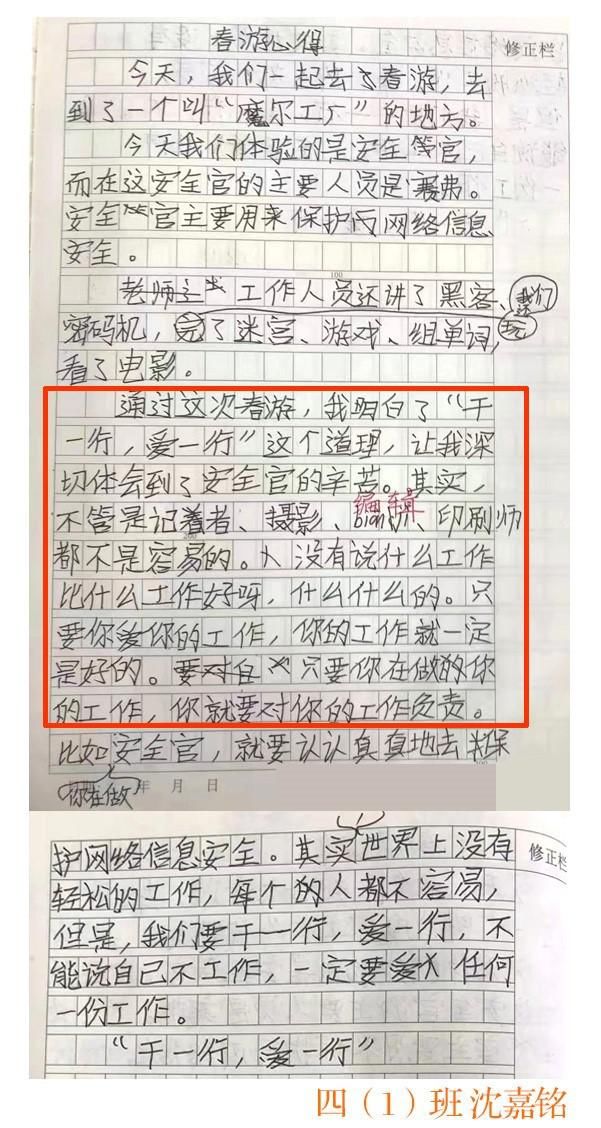 春游心得
修正栏
今天，我们一起去了春游，去
到了一个叫“魔尔工厂”的地方。
今天我们体验的是安全官，
而在这安全官的主要人员是赛弗。
安全官主要用来保护网络信息
安全。
100
老师 工作人员还讲了黑客、我们还
密码机，完了迷宫、游戏、组单词，玩
看了电影。
通过这次春游，我明白了“干
一行，爱一行”这个道理，让我深
切体会到了安全官的辛苦。其实，
编辑
不管是记者、摄影、bianji、印刷师
200
都不是容易的。没有说什么工作
比什么工作好呀，什么什么的。只
要你爱你的工作，你的工作就一定
是好的。要对自 只要你在做的你
的工作，你就要对你的工作负责。
比如安全官，就要认认真真地去保
300
你在做
年 月 日
护网络信息安全。其实世界上没有
修正栏
轻松的工作，每个的人都不容易，
但是，我们要干一行，爱一行，不
能说自己不工作，一定要爱任何
一份工作。
“干一行，爱一行”
四（1）班 沈嘉铭